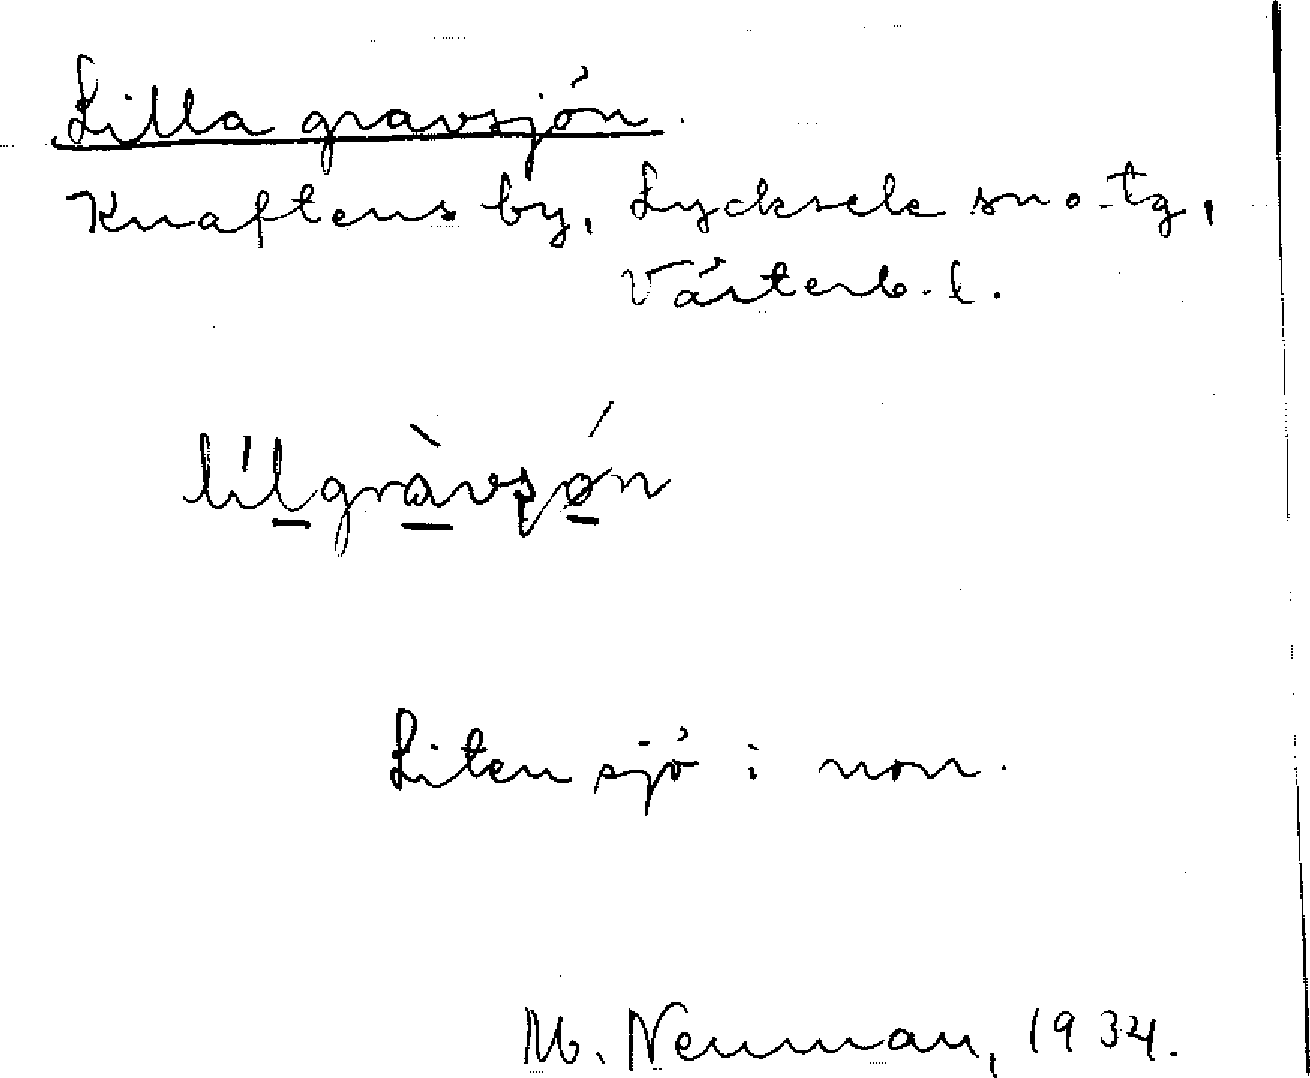 Lilla gravsjön.
Knaftens by, Lycksele sn o. tg,
Västerb. l.
lílgràvsjǿn
Liten sjö i non.
M. Neuman, 1934.